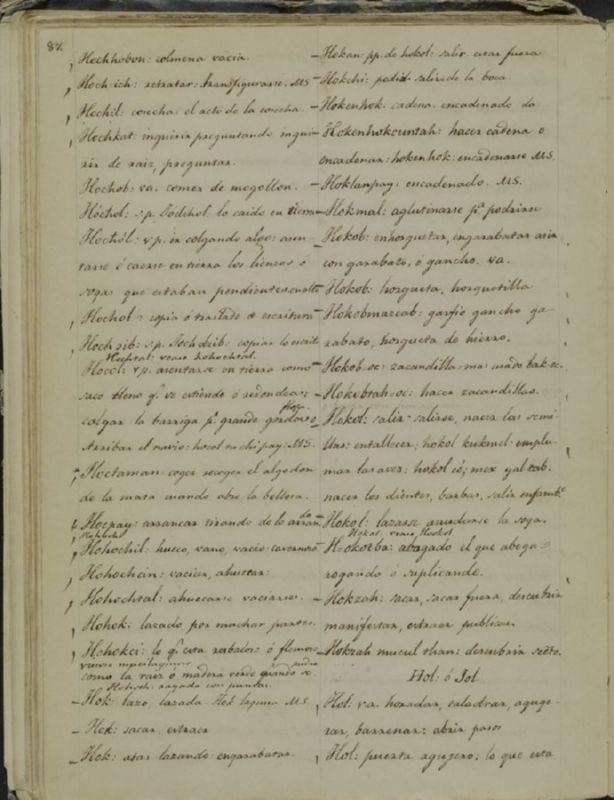 82.
Hochhobon: colmena vacia.
Hoch ich: retratar: transfigurarse. MS
Hochil: cosecha: el acto de la cosecha.
Hochkat: inquirir preguntando inqui-
rir de raiz, preguntar.
Hochob: va. comer de mogollon.
Hochol: s.p. Dodchol lo caido en tierra
Hochól: v.p. ir colgando algo: asen-
tarse ó caerse en tierra los lienzos ó
sogas que estaban pendientes
Hochol copia ó traslado de escritura
Hoch zib: s.p. copiar lo escrito
Hochtal: vease hohochtal.
Hocol: v.p. asentarse en tierra como
saco lleno q.e se estiende ó redondea:
colgar la barriga p.r grande
Arribar el navio: hocol tu chi pay. MS.
Hoctaman: coger recoger el algodon
de la mata cuando abre la bellota.
Hocpay: arrancar tirando de lo
Hohochil: hueco, vano, vacio:
Hohochcin: vaciar, ahuecar.
Hohochtal: ahuecarse vaciarse.
Hohok: lazado por muchas partes.
Hohokci: lo q.e esta
como la raiz ó madera verde
rayado con puntas.
Hok: lazo, lazada Hok laguna MS.
Hok: sacar, estraer
Hok: atar lazando: engarabatar.
Hokan: pp. de hokol: salir estar fuera
Hokchi: salir de la boca.
Hokenhok. cadena, encadenado da
Hokenhokcuntah: hacer cadena o
encadenar: hokenhok: encadenarse MS.
Hoklanpay: encadenado. MS.
Hokmal: aglutinarse p.r podrirse
Hokob: enhorquetar, engarabatar asir
con garabato, ó gancho. va.
Hokob: horqueta, horquetilla
Hokobmazcab: garfio gancho ga-
rabato, horqueta de hierro.
Hokob-oc: zacandilla
Hokobtah-oc: hacer zacandillas.
Hokol: salir salirse, nacer las semi
llas: entallecer; hokol kukmel: emplu-
mar las aves: hokol có; mex
nacer los dientes, barbas, salir
Hokol: lazarse anudarse la soga.
Hokol, vease,
Hokotba: abogado el que aboga
rogando ó suplicando.
Hokzah: sacar, sacar fuera, descubrir
manifestar, estraer publicar.
Hokzah mucul than: descubrir sécto.
Hol: ó Jol
Hol: va. horadar, taladrar, aguge-
rar, barrenar: abrir paso
Hol: puerta agugero; lo que esta